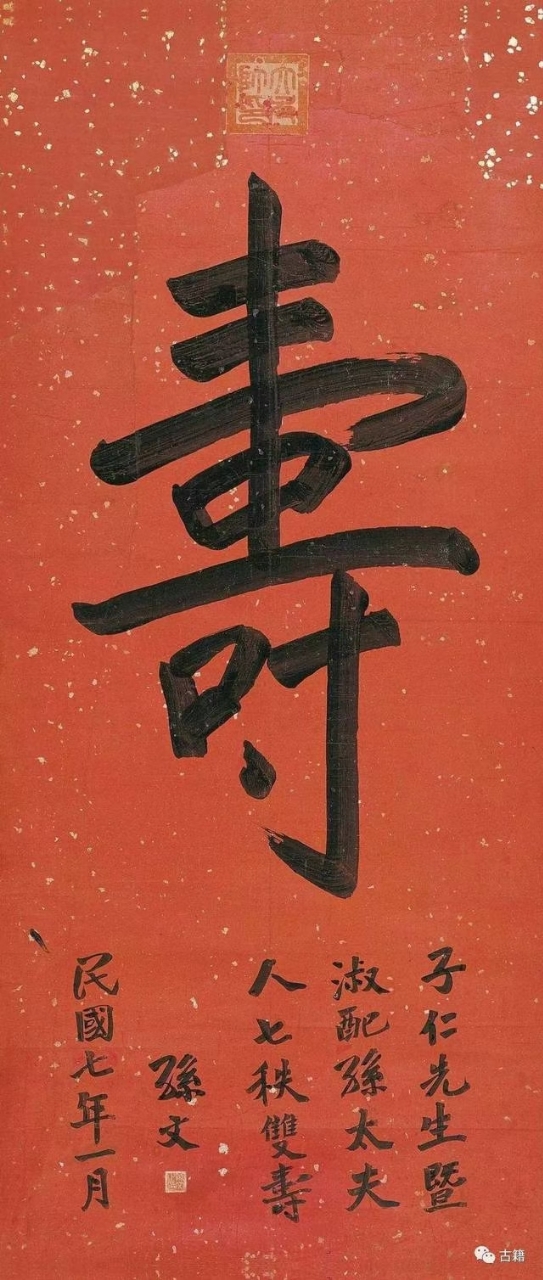 壽
子仁先生暨
淑配孫太夫
人七秩雙壽
孫文
民國七年一月
古籍